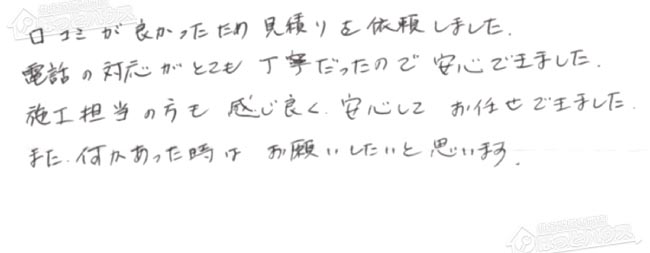 口コミが良かったため見積りを依頼しました。
電話の対応がとても丁寧だったので安心できました。
施工担当の方も感じ良く、安心してお任せできました。
また、何かあった時はお願いしたいと思います。